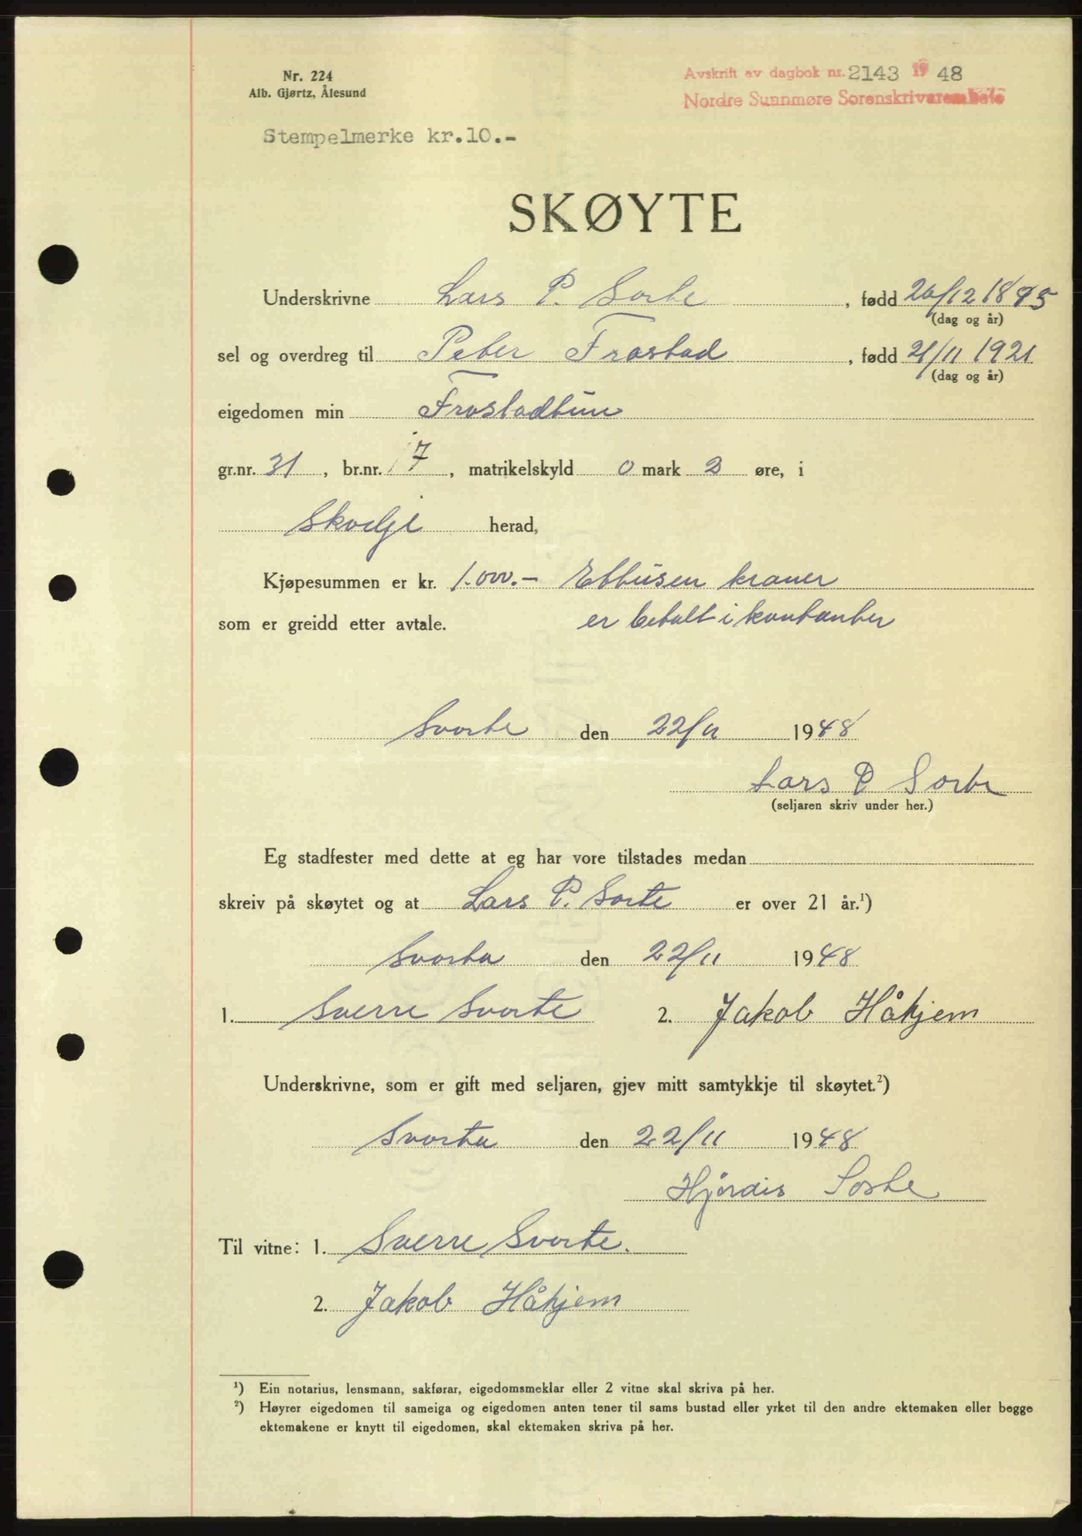 Nr. 224
Alb. Gjørtz, Ålesund
Avskrift av dagbok nr. 2143 19 48
Nordre Sunnmøre Sorenskrivarembete
Stempelmerke kr.10.-
SKØYTE
Underskrivne Lars P. Sorte , fødd 20/12 1895
(dag og år)
sel og overdreg til Peter Frostad , fødd 21/11 1921
(dag og år)
eigedomen min Frostadtun
gr.nr. 31 , br.nr. 17 , matrikelskyld 0 mark 2 øre, i
Skodje herad,
Kjøpesummen er kr. 1.000.- Ettusen kroner
som er greidd etter avtale. er betalt i kontanter
Svorte den 22/11 1948
Lars P Sorte
(seljaren skriv under her.)
Eg stadfester med dette at eg har vore tilstades medan
skreiv på skøytet og at Lars P. Sorte er over 21 år.¹)
Svorta den 22/11 1948
1. Sverre Svorte 2. Jakob Håhjem
Underskrivne, som er gift med seljaren, gjev mitt samtykkje til skøytet.²)
Svorta den 22/11 1948
Hjørdis Sorte
Til vitne: 1. Sverre Svorte.
2. Jakob Håhjem
¹) Ein notarius, lensmann, sakførar, eigedomsmeklar eller 2 vitne skal skriva på her.
²) Høyrer eigedomen til sameiga og eigedomen anten tener til sams bustad eller yrket til den andre ektemaken eller begge
ektemakene er knytt til eigedomen, skal ektemaken skriva på her.